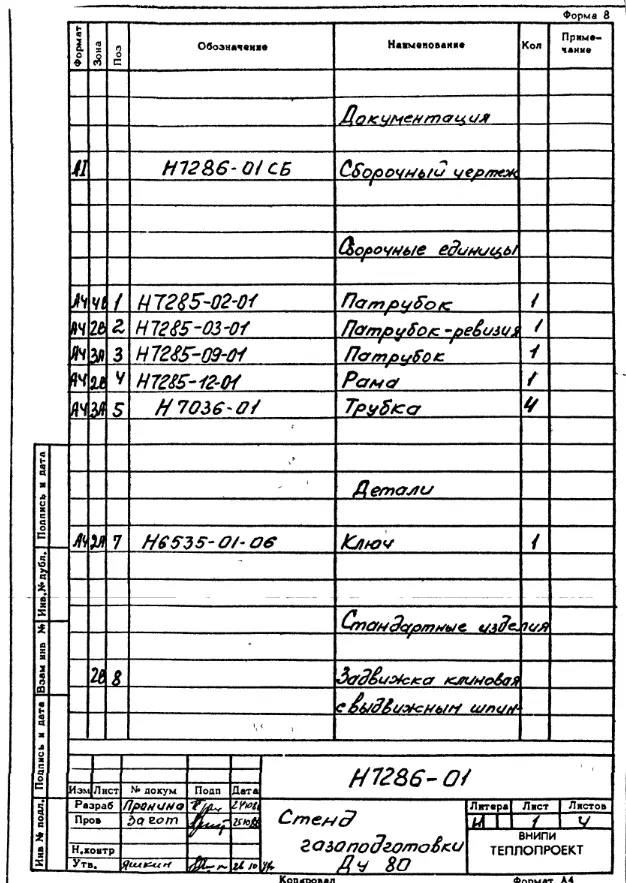 Форма 8
Формат Зона Поз Обозначение Наименование Кол Приме-
чание
Документация
А1 Н7286-01 СБ Сборочный чертеж
Сборочные единицы
А4 4В 1 Н7285-02-01 Патрубок 1
А4 2В 2 Н7285-03-01 Патрубок-ревизия 1
А4 3А 3 Н7285-09-01 Патрубок 1
А4 2В 4 Н7285-12-01 Рама 1
А4 3А 5 Н7036-01 Трубка 4
Детали
А4 2А 7 Н6535-01-06 Ключ 1
Стандартные изделия
2В 8 Задвижка клиновая
с выдвижным шпин-
Инв № подл. Подпись и дата Взам инв № Инв.№ дубл. Подпись и дата
Н7286-01
Изм Лист № докум Подп Дата
Разраб Пронина
Пров Загот
Н.контр
Утв. Яшкин
Стенд
газаподготовки
Ду 80
Литера Лист Листов
И 1 4
ВНИПИ
ТЕПЛОПРОЕКТ
Копировал Формат А4